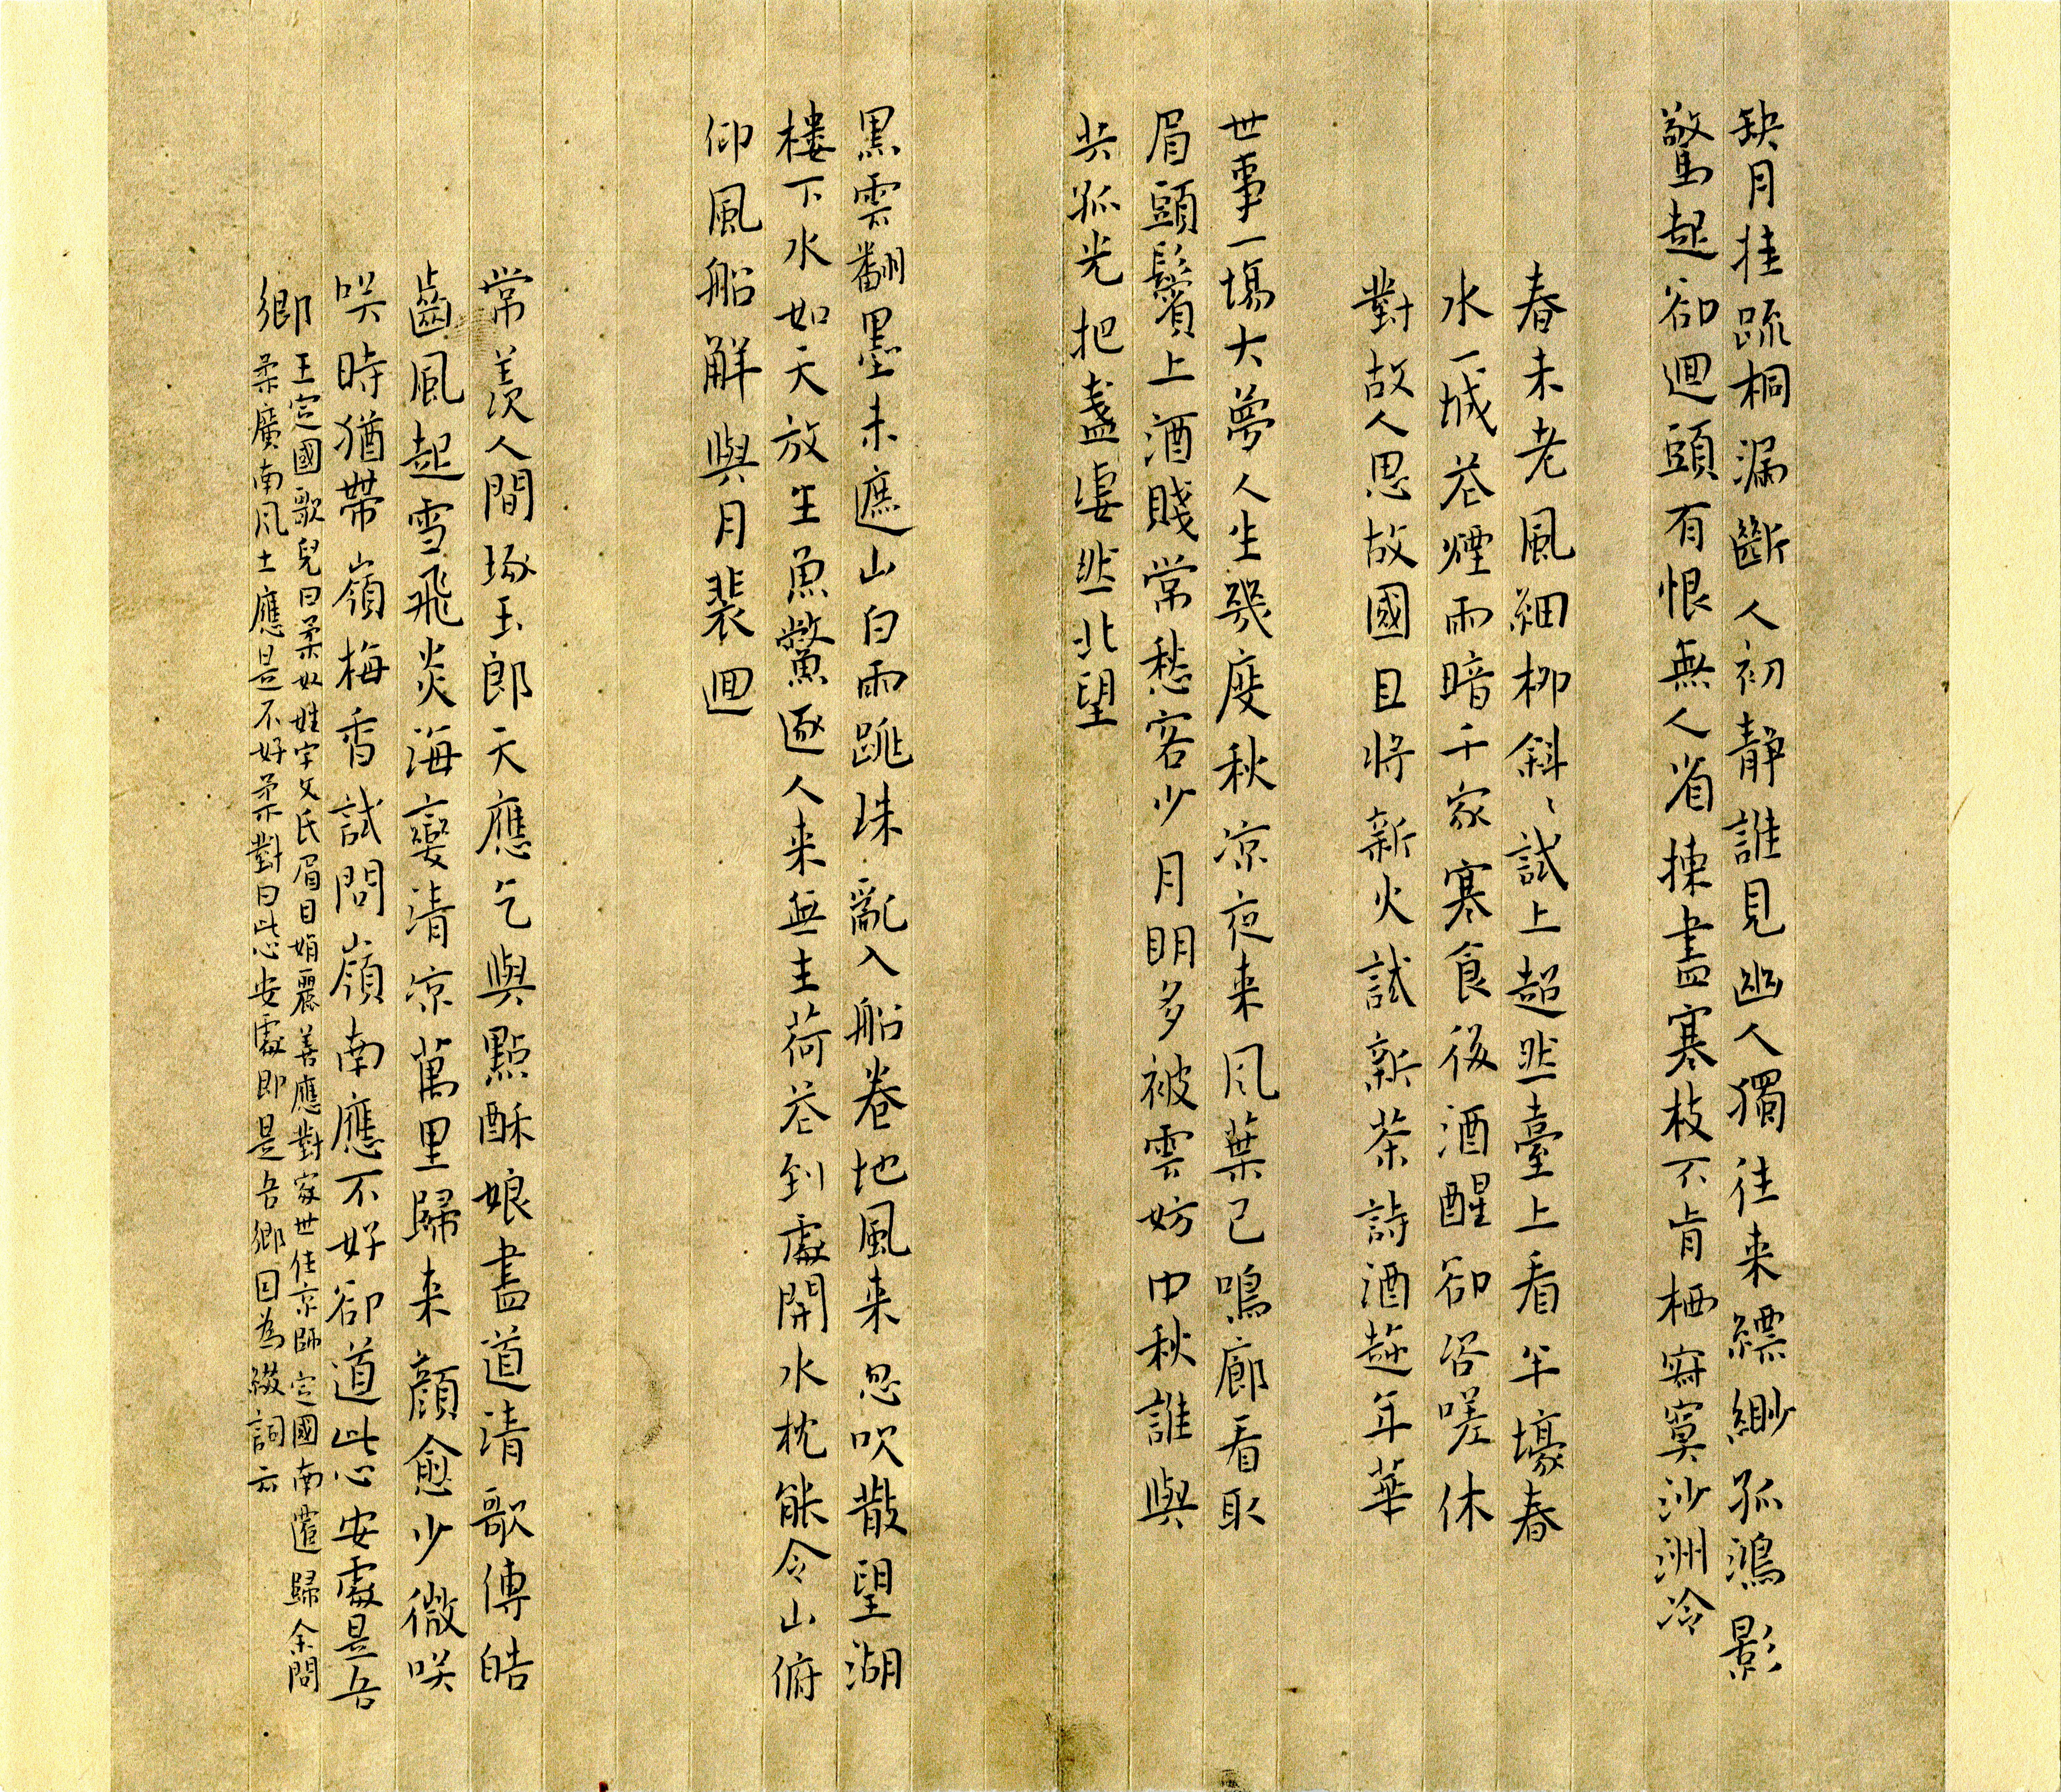 缺月挂疏桐漏斷人初靜誰見幽人獨往来縹緲孤鴻影
驚起卻迴頭有恨無人省揀盡寒枝不肯栖寂寞沙洲冷
春未老風細柳斜〻試上超然臺上看半壕春
水一城花煙雨暗千家寒食後酒醒卻咨嗟休
對故人思故國且將新火試新茶詩酒趂年華
世事一場大夢人生幾度秋凉夜来风葉已鳴廊看取
眉頭鬢上酒賤常愁客少月明多被雲妨中秋誰與
共孤光把盞凄然北望
黑雲翻墨未遮山白雨跳珠亂入船卷地風来忽吹散望湖
樓下水如天放生魚鱉逐人来無主荷花到處開水枕能令山俯
仰風船解與月裴迴
常羨人間琢玉郎天應乞與點酥娘盡道清歌傳皓
齒風起雪飛炎海變清凉萬里歸来顔愈少微咲
咲時猶帶嶺梅香試問嶺南應不好卻道此心安處是吾
鄉
王定國歌兒曰柔奴姓宇文氏眉目娟麗善應對家世住京師定國南遷歸余問
柔廣南风土應是不好柔對曰此心安處即是吾鄉因為綴詞云